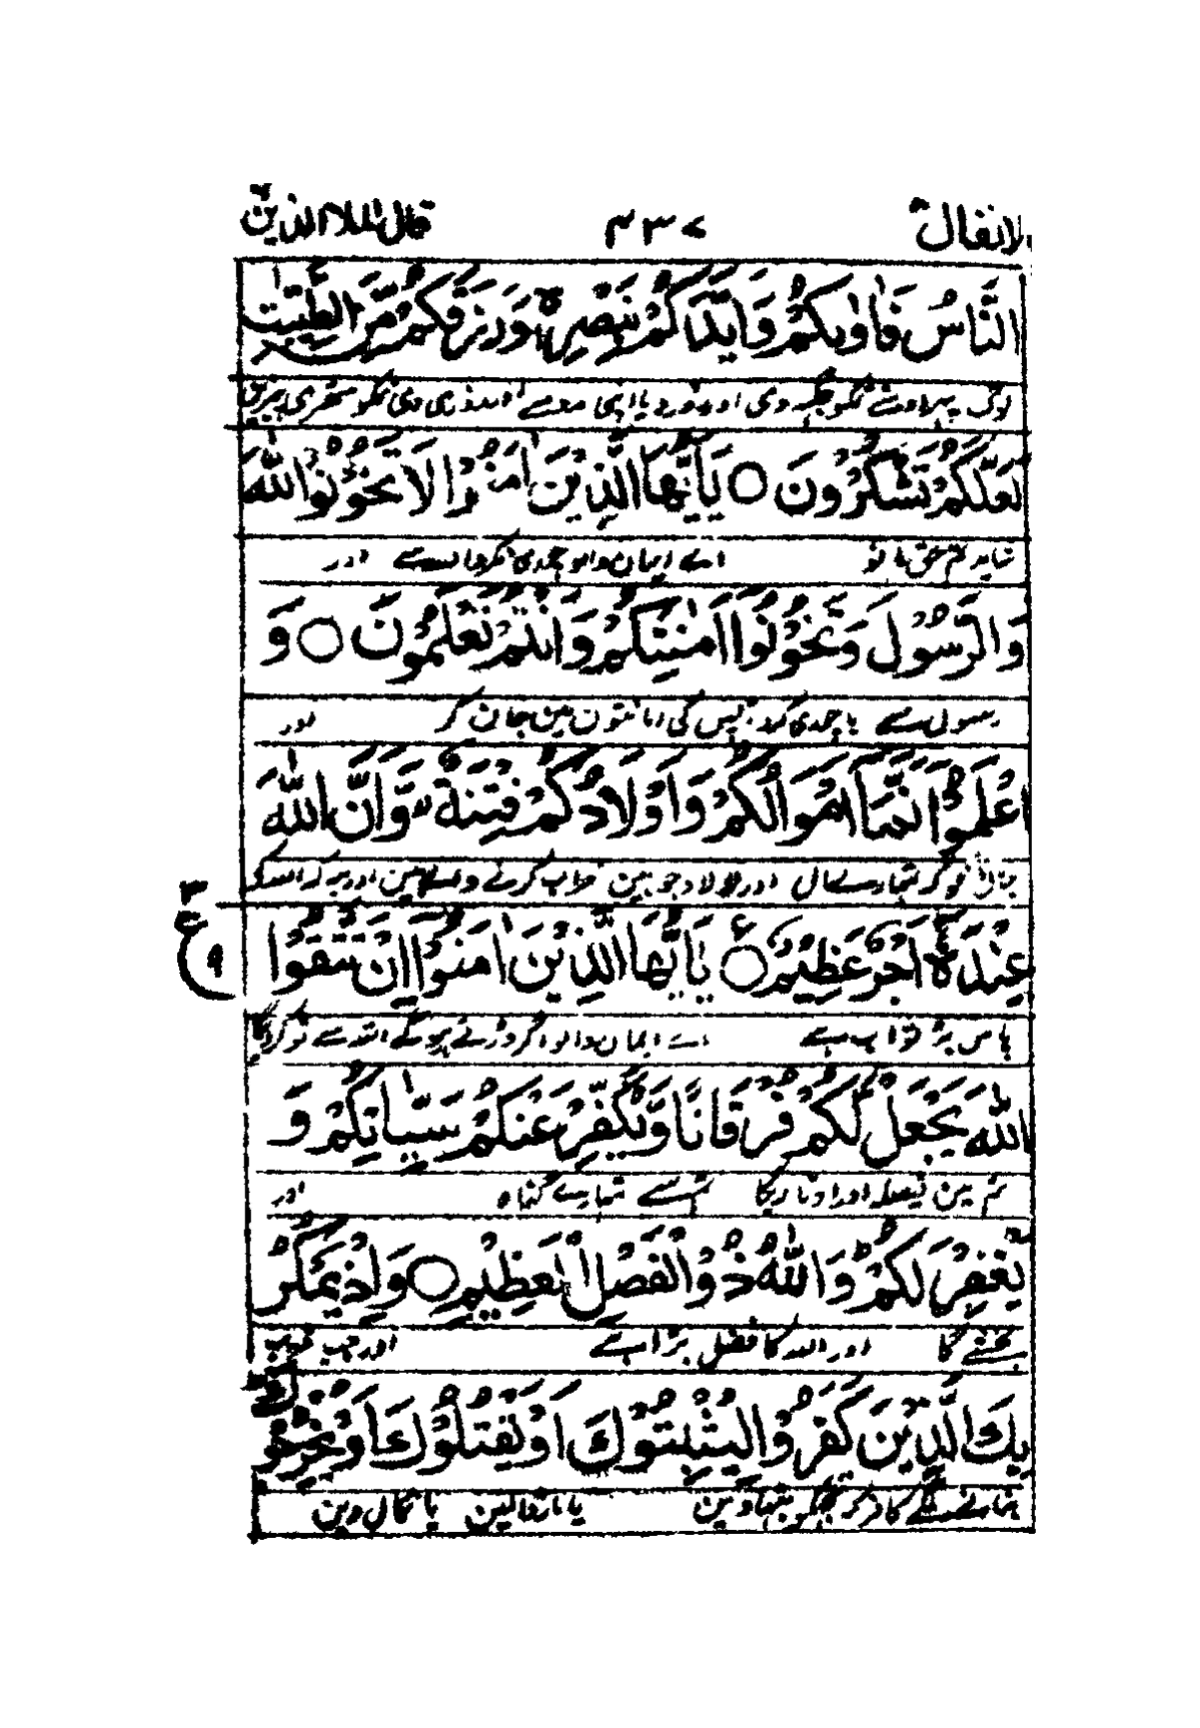 الانفال ٤٣٧ قال الملا الذين
النَّاسُ فَاٰوٰىكُمْ وَاَيَّدَكُمْ بِنَصْرِهٖ وَرَزَقَكُمْ مِّنَ الطَّيِّبٰتِ
لوگ پہر اوسنے تمکو جگہہ دی اور زور دیا اپنی مدد سے اور روزی دی تمکو ستھری چیزین
لَعَلَّكُمْ تَشْكُرُوْنَ ○ يَاَيُّهَا الَّذِيْنَ اٰمَنُوْا لَا تَخُوْنُوا اللّٰهَ
شاید تم حق مانو اے ایمان والو چوری نکرو اللہ سے اور
وَالرَّسُوْلَ وَتَخُوْنُوْا اَمٰنٰتِكُمْ وَاَنْتُمْ تَعْلَمُوْنَ ○ وَ
رسول سے یا چوری کرو آپس کی امانتون مین جان کر اور
اعْلَمُوْا اَنَّمَا اَمْوَالُكُمْ وَاَوْلَادُكُمْ فِتْنَةٌ وَّاَنَّ اللّٰهَ
جان لو کہ تمہارے مال اور اولاد جو ہین خراب کرنے والے ہین اور یہ کہ اللہ کے
عِنْدَهٗ اَجْرٌ عَظِيْمٌ ○ يَاَيُّهَا الَّذِيْنَ اٰمَنُوْا اِنْ تَتَّقُوا
ع ٣ ٩
پاس بڑا ثواب ہے اے ایمان والو اگر ڈرتے رہو گے اللہ سے تو کردیگا
اللّٰهَ يَجْعَلْ لَّكُمْ فُرْقَانًا وَّيُكَفِّرْ عَنْكُمْ سَيِّاٰتِكُمْ وَ
تم مین فیصلہ اور اوتاریگا تم سے تمہارے گناہ اور
يَغْفِرْ لَكُمْ وَاللّٰهُ ذُو الْفَضْلِ الْعَظِيْمِ ○ وَاِذْ يَمْكُرُ
بخشے گا اور اللہ کا فضل بڑا ہے اور جب فریب
بِكَ الَّذِيْنَ كَفَرُوْا لِيُثْبِتُوْكَ اَوْ يَقْتُلُوْكَ اَوْ يُخْرِجُوْكَ
بنانے لگے کافر کہ تجھکو بٹھاوین یا مارڈالین یا نکال دین